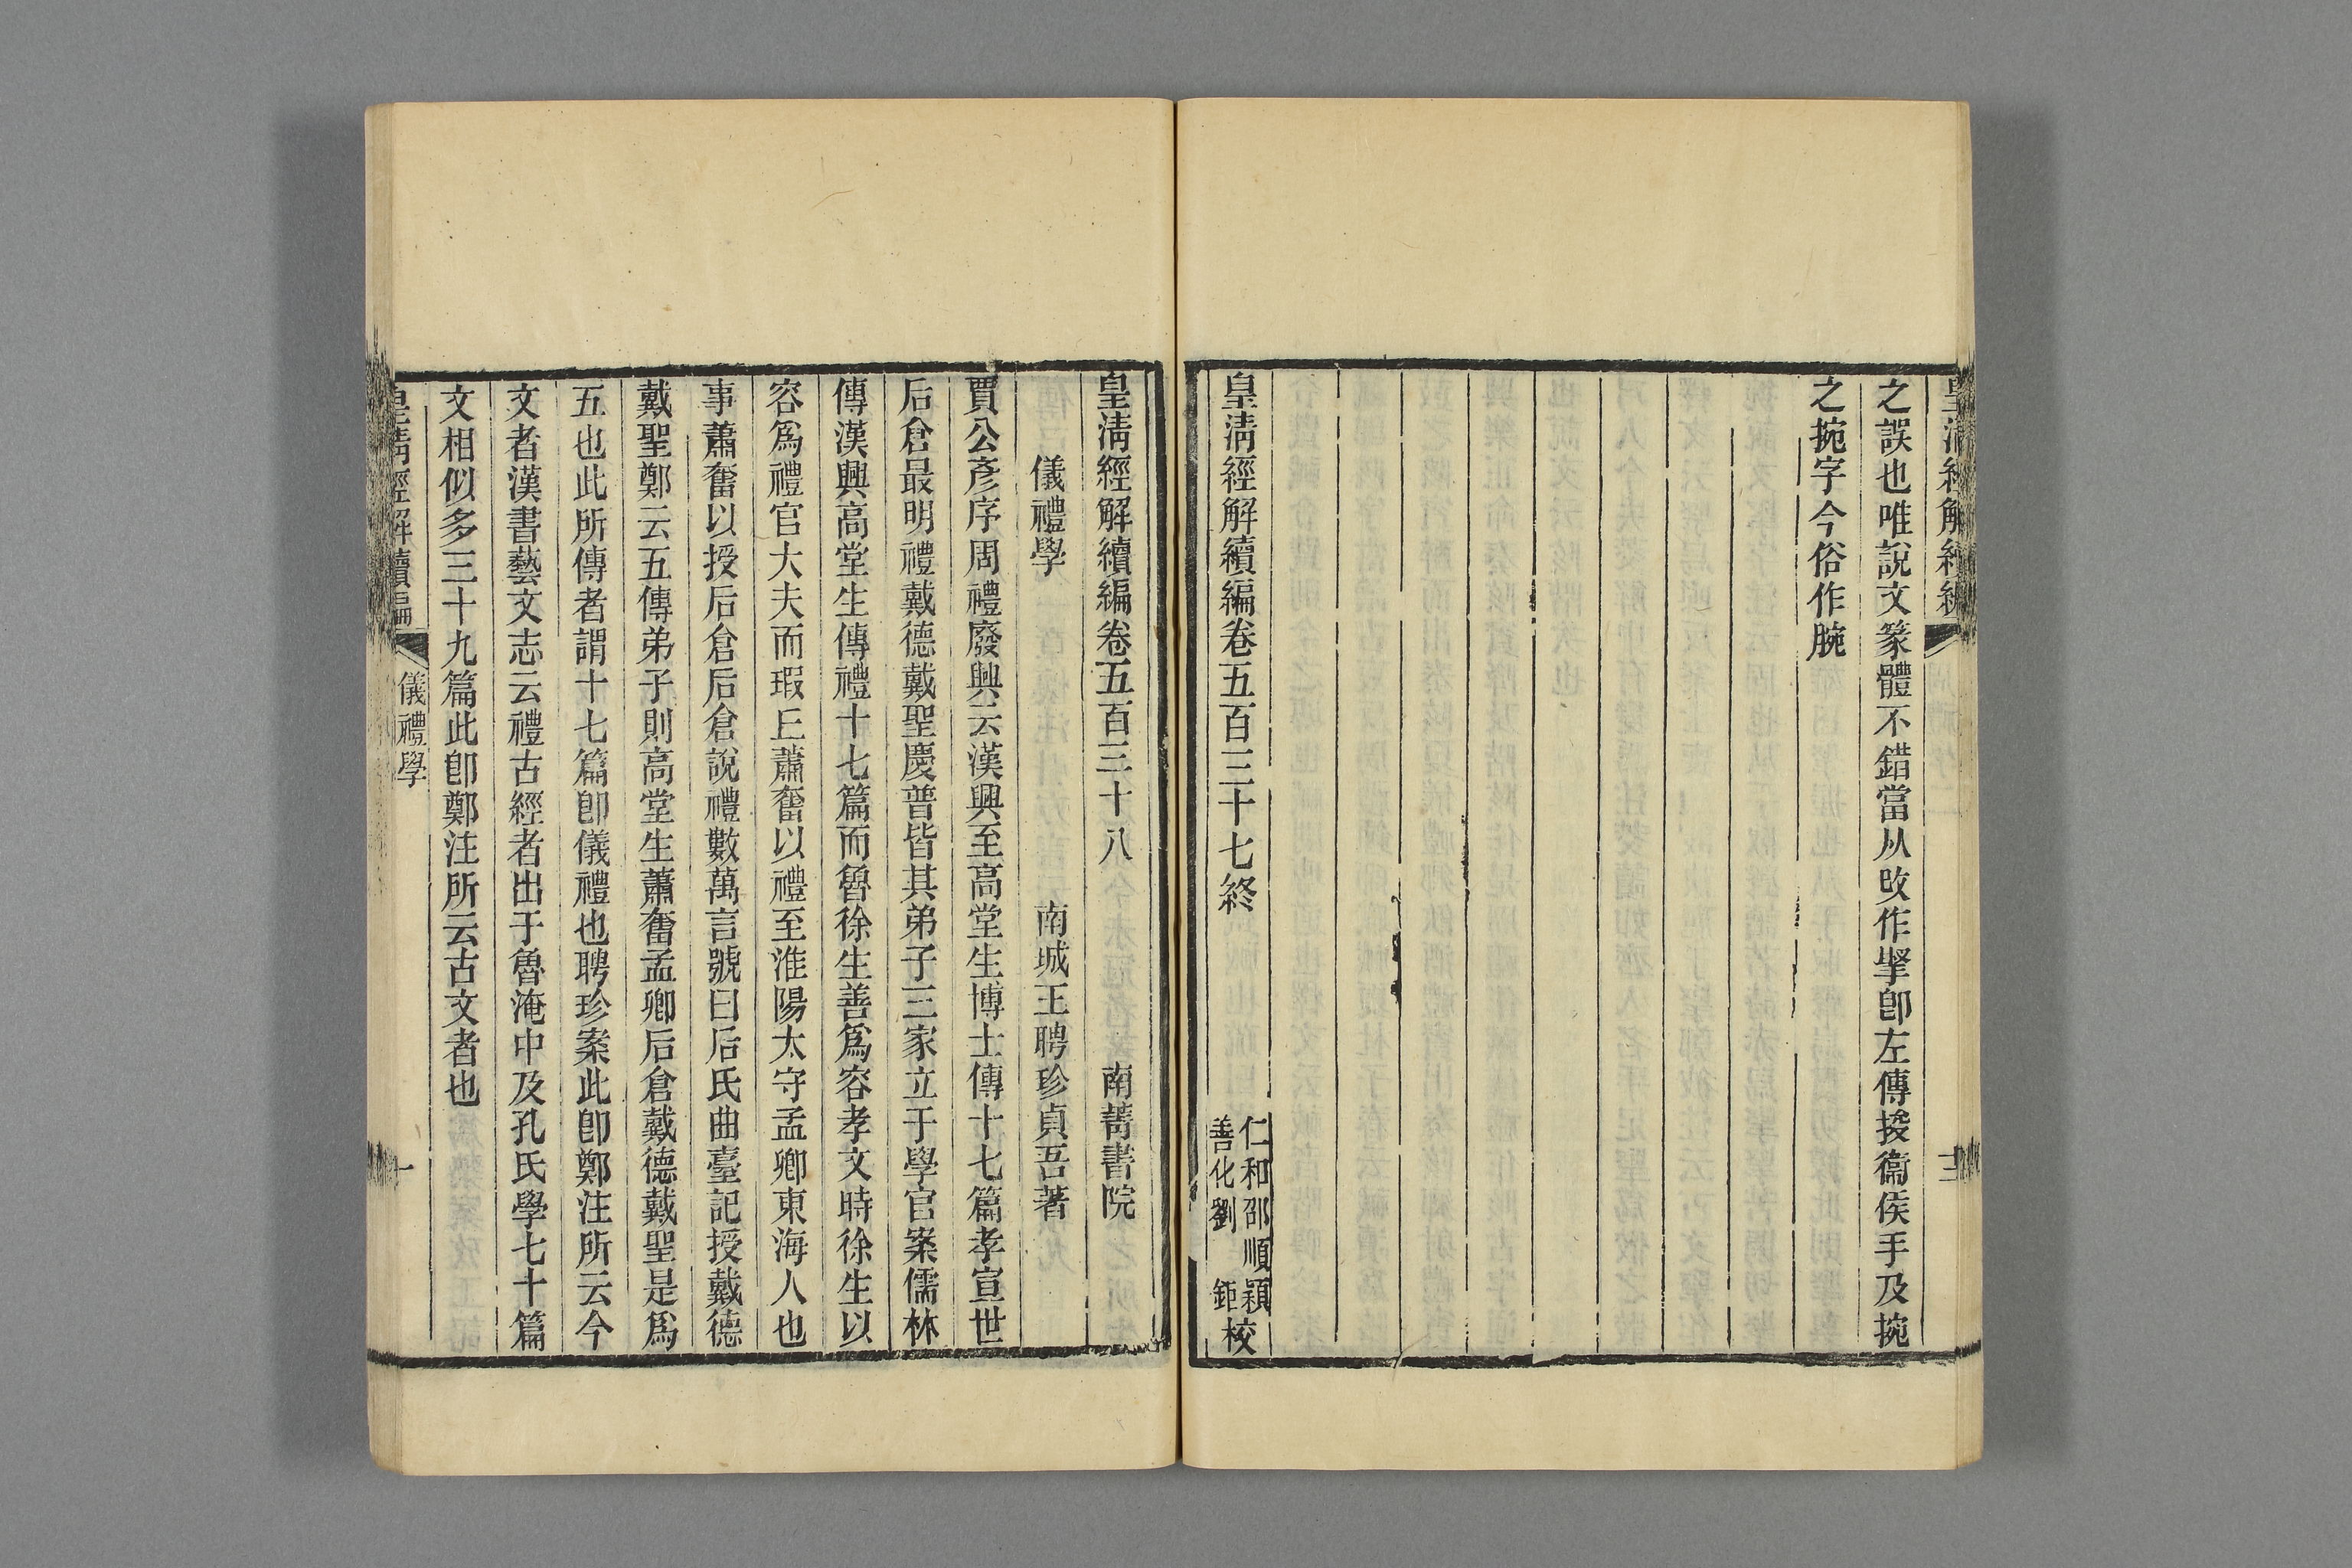 之誤也唯說文篆體不錯當从㪅作掔卽左傳捘衞侯手及捥
之捥字今俗作腕
皇淸經解續編卷五百三十七終
仁和邵順穎
善化劉鉅校
皇淸經解續編卷五百三十八
南菁書院
儀禮學
南城王聘珍貞吾著
賈公彥序周禮廢興云漢興至高堂生博士傳十七篇孝宣世
后倉最明禮戴德戴聖慶普皆其弟子三家立于學官案儒林
傳漢興高堂生傳禮十七篇而魯徐生善爲容孝文時徐生以
容爲禮官大夫而瑕丘蕭奮以禮至淮陽太守孟卿東海人也
事蕭奮以授后倉后倉說禮數萬言號曰后氏曲臺記授戴德
戴聖鄭云五傳弟子則高堂生蕭奮孟卿后倉戴德戴聖是爲
五也此所傳者謂十七篇卽儀禮也聘珍案此卽鄭注所云今
文者漢書藝文志云禮古經者出于魯淹中及孔氏學七十篇
文相似多三十九篇此卽鄭注所云古文者也
皇淸經解續編
儀禮學
一